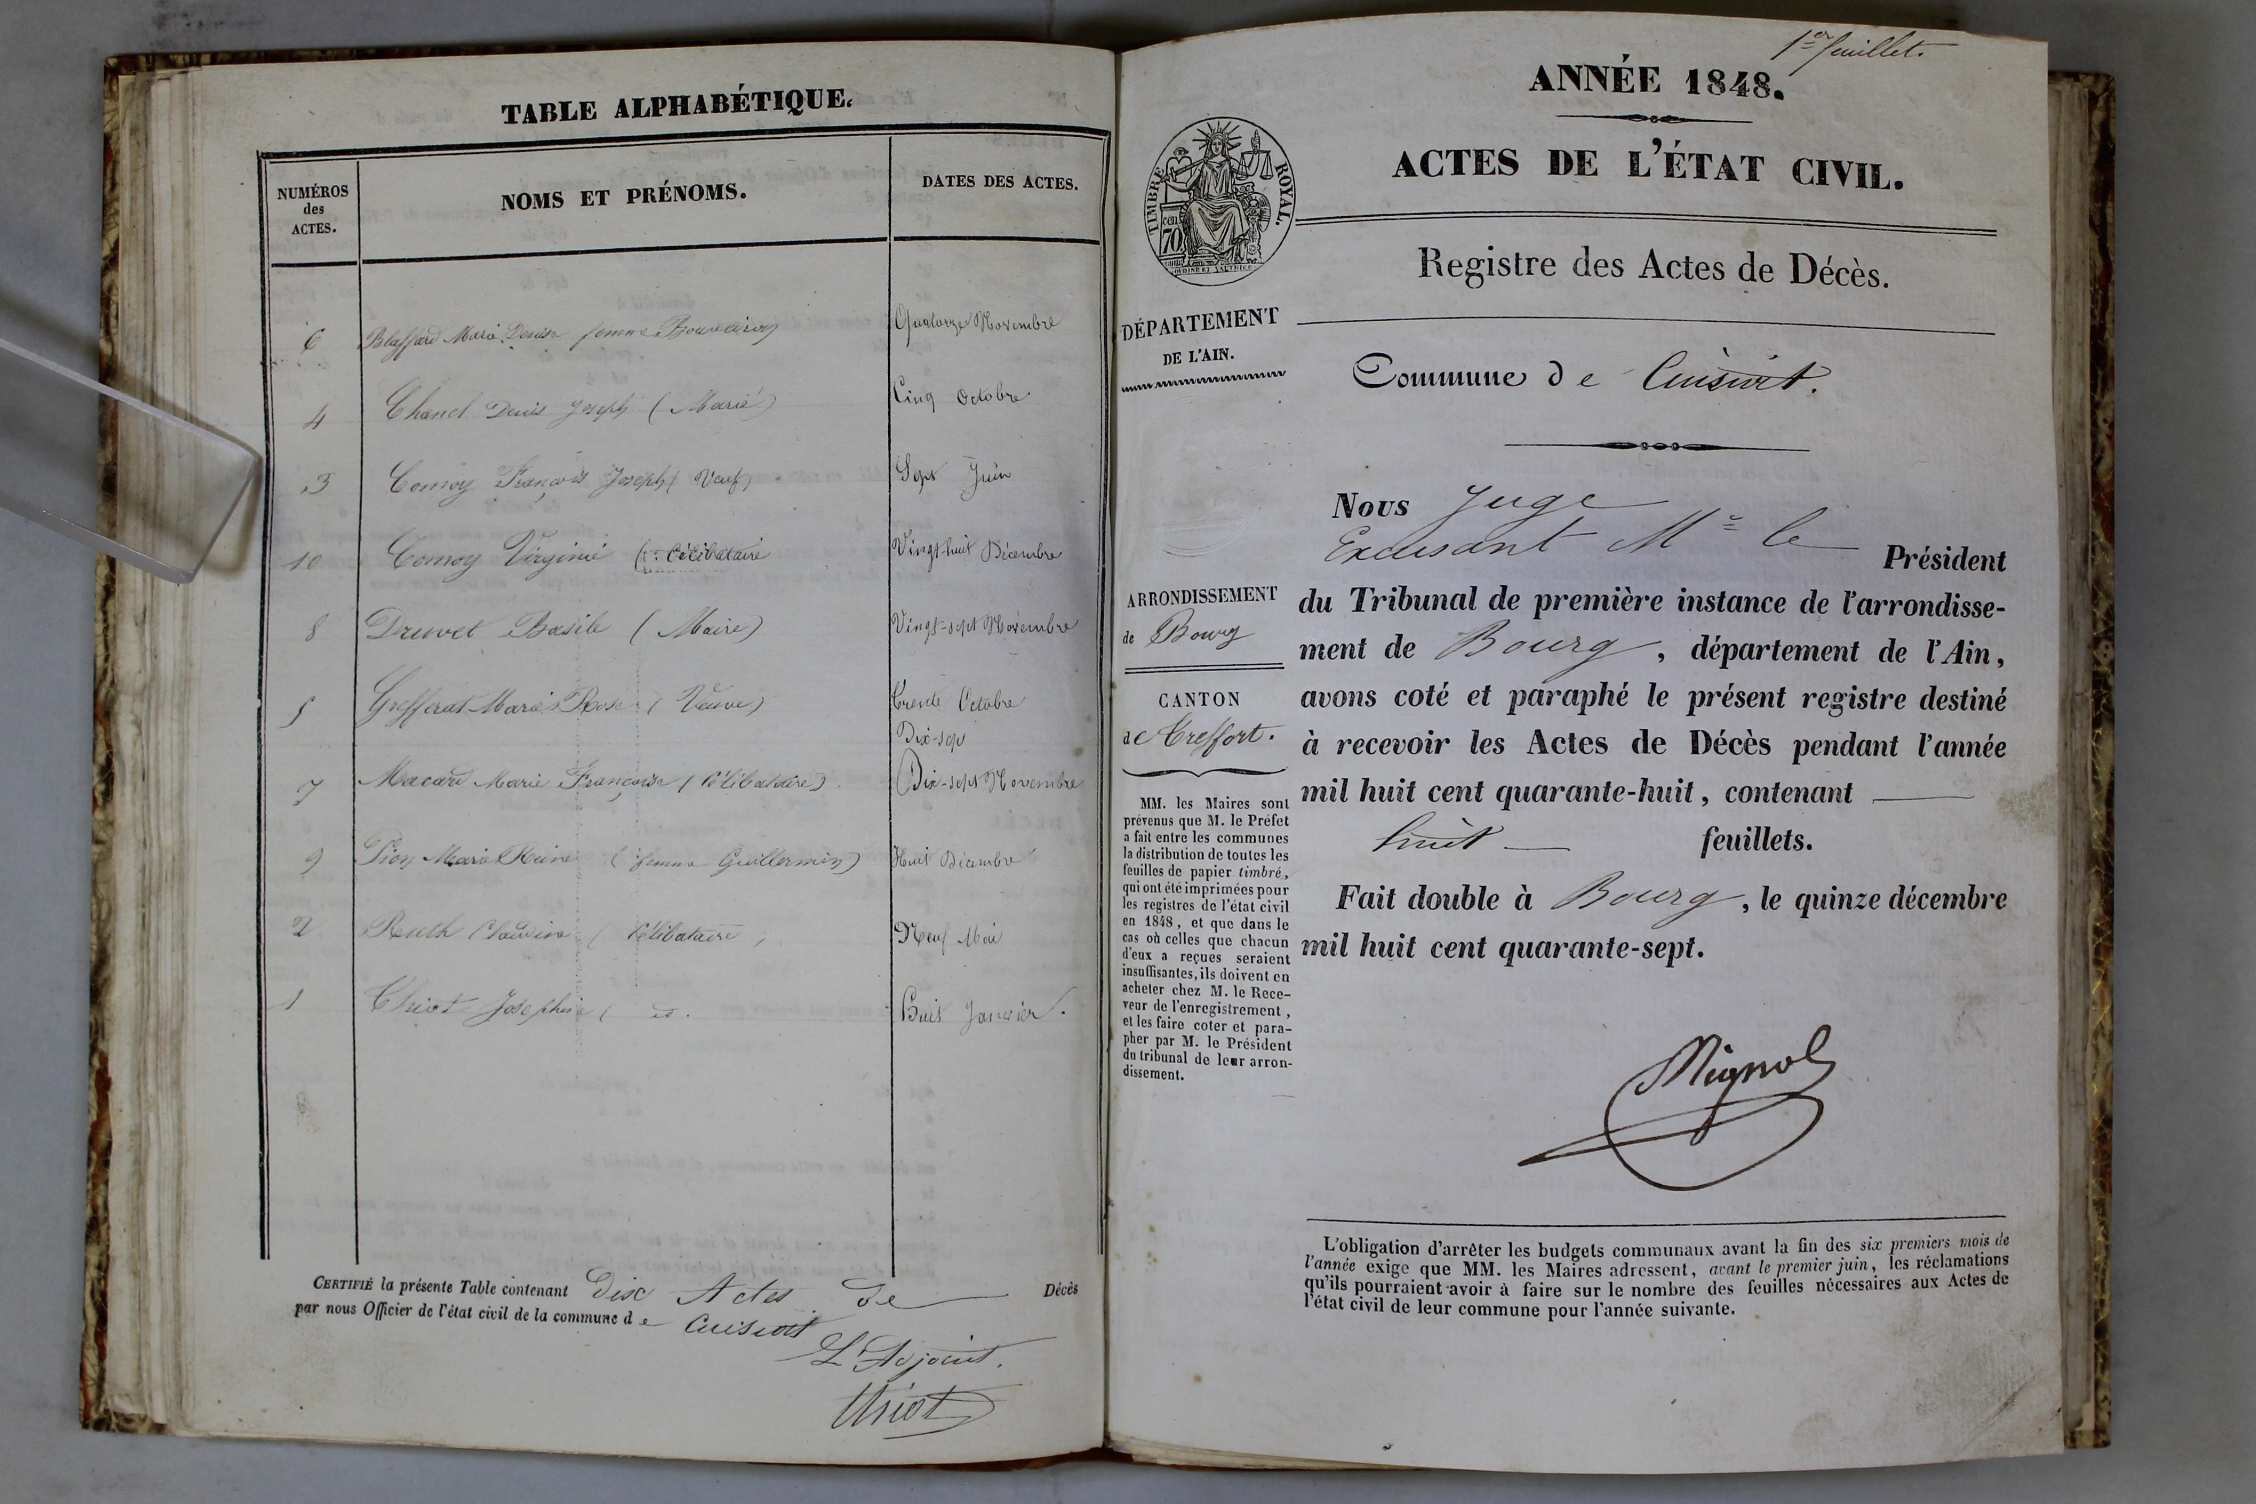 TABLE ALPHABÉTIQUE.
NUMÉROS des ACTES.
NOMS ET PRÉNOMS.
DATES DES ACTES.
6 Marie Denise femme Quatorze Novembre
4 Chanel Denis Joseph (Marié) Cinq Octobre
3 Comoy François Joseph (Veuf) Sept Juin
10 Comoy Virginie (Célibataire Vingt-huit Décembre
8 Druvet Basile (Maire) Vingt-sept Novembre
5 Grefferat Marie Rose (Veuve) Trente Octobre
Dix-sept
7 Macard Marie Françoise (Célibataire) Dix-sept Novembre
9 Pion Marie Reine (femme Guillermin) Huit Décembre
2 Ruth Claudine (Célibataire) Neuf Mai
1 Thiot Josephine ( id. Huit Janvier.
CERTIFIÉ la présente Table contenant Dix Actes de Décès
par nous Officier de l'état civil de la commune de Cuisiat
L'Adjoint.
Thiot
1er feuillet.
ANNÉE 1848.
ACTES DE L'ÉTAT CIVIL.
TIMBRE ROYAL.
cen
70
Registre des Actes de Décès.
DÉPARTEMENT
DE L'AIN.
Commune de Cuisiat.
Nous Juge
Excusant Mr le Président
du Tribunal de première instance de l'arrondisse-
ment de Bourg, département de l'Ain,
avons coté et paraphé le présent registre destiné
à recevoir les Actes de Décès pendant l'année
mil huit cent quarante-huit, contenant
huit feuillets.
Fait double à Bourg, le quinze décembre
mil huit cent quarante-sept.
ARRONDISSEMENT
de Bourg
CANTON
de Treffort.
MM. les Maires sont
prévenus que M. le Préfet
a fait entre les communes
la distribution de toutes les
feuilles de papier timbré,
qui ont été imprimées pour
les registres de l'état civil
en 1848, et que dans le
cas où celles que chacun
d'eux a reçues seraient
insuffisantes, ils doivent en
acheter chez M. le Rece-
veur de l'enregistrement,
et les faire coter et para-
pher par M. le Président
du tribunal de leur arron-
dissement.
Mignot
L'obligation d'arrêter les budgets communaux avant la fin des six premiers mois de
l'année exige que MM. les Maires adressent, avant le premier juin, les réclamations
qu'ils pourraient avoir à faire sur le nombre des feuilles nécessaires aux Actes de
l'état civil de leur commune pour l'année suivante.